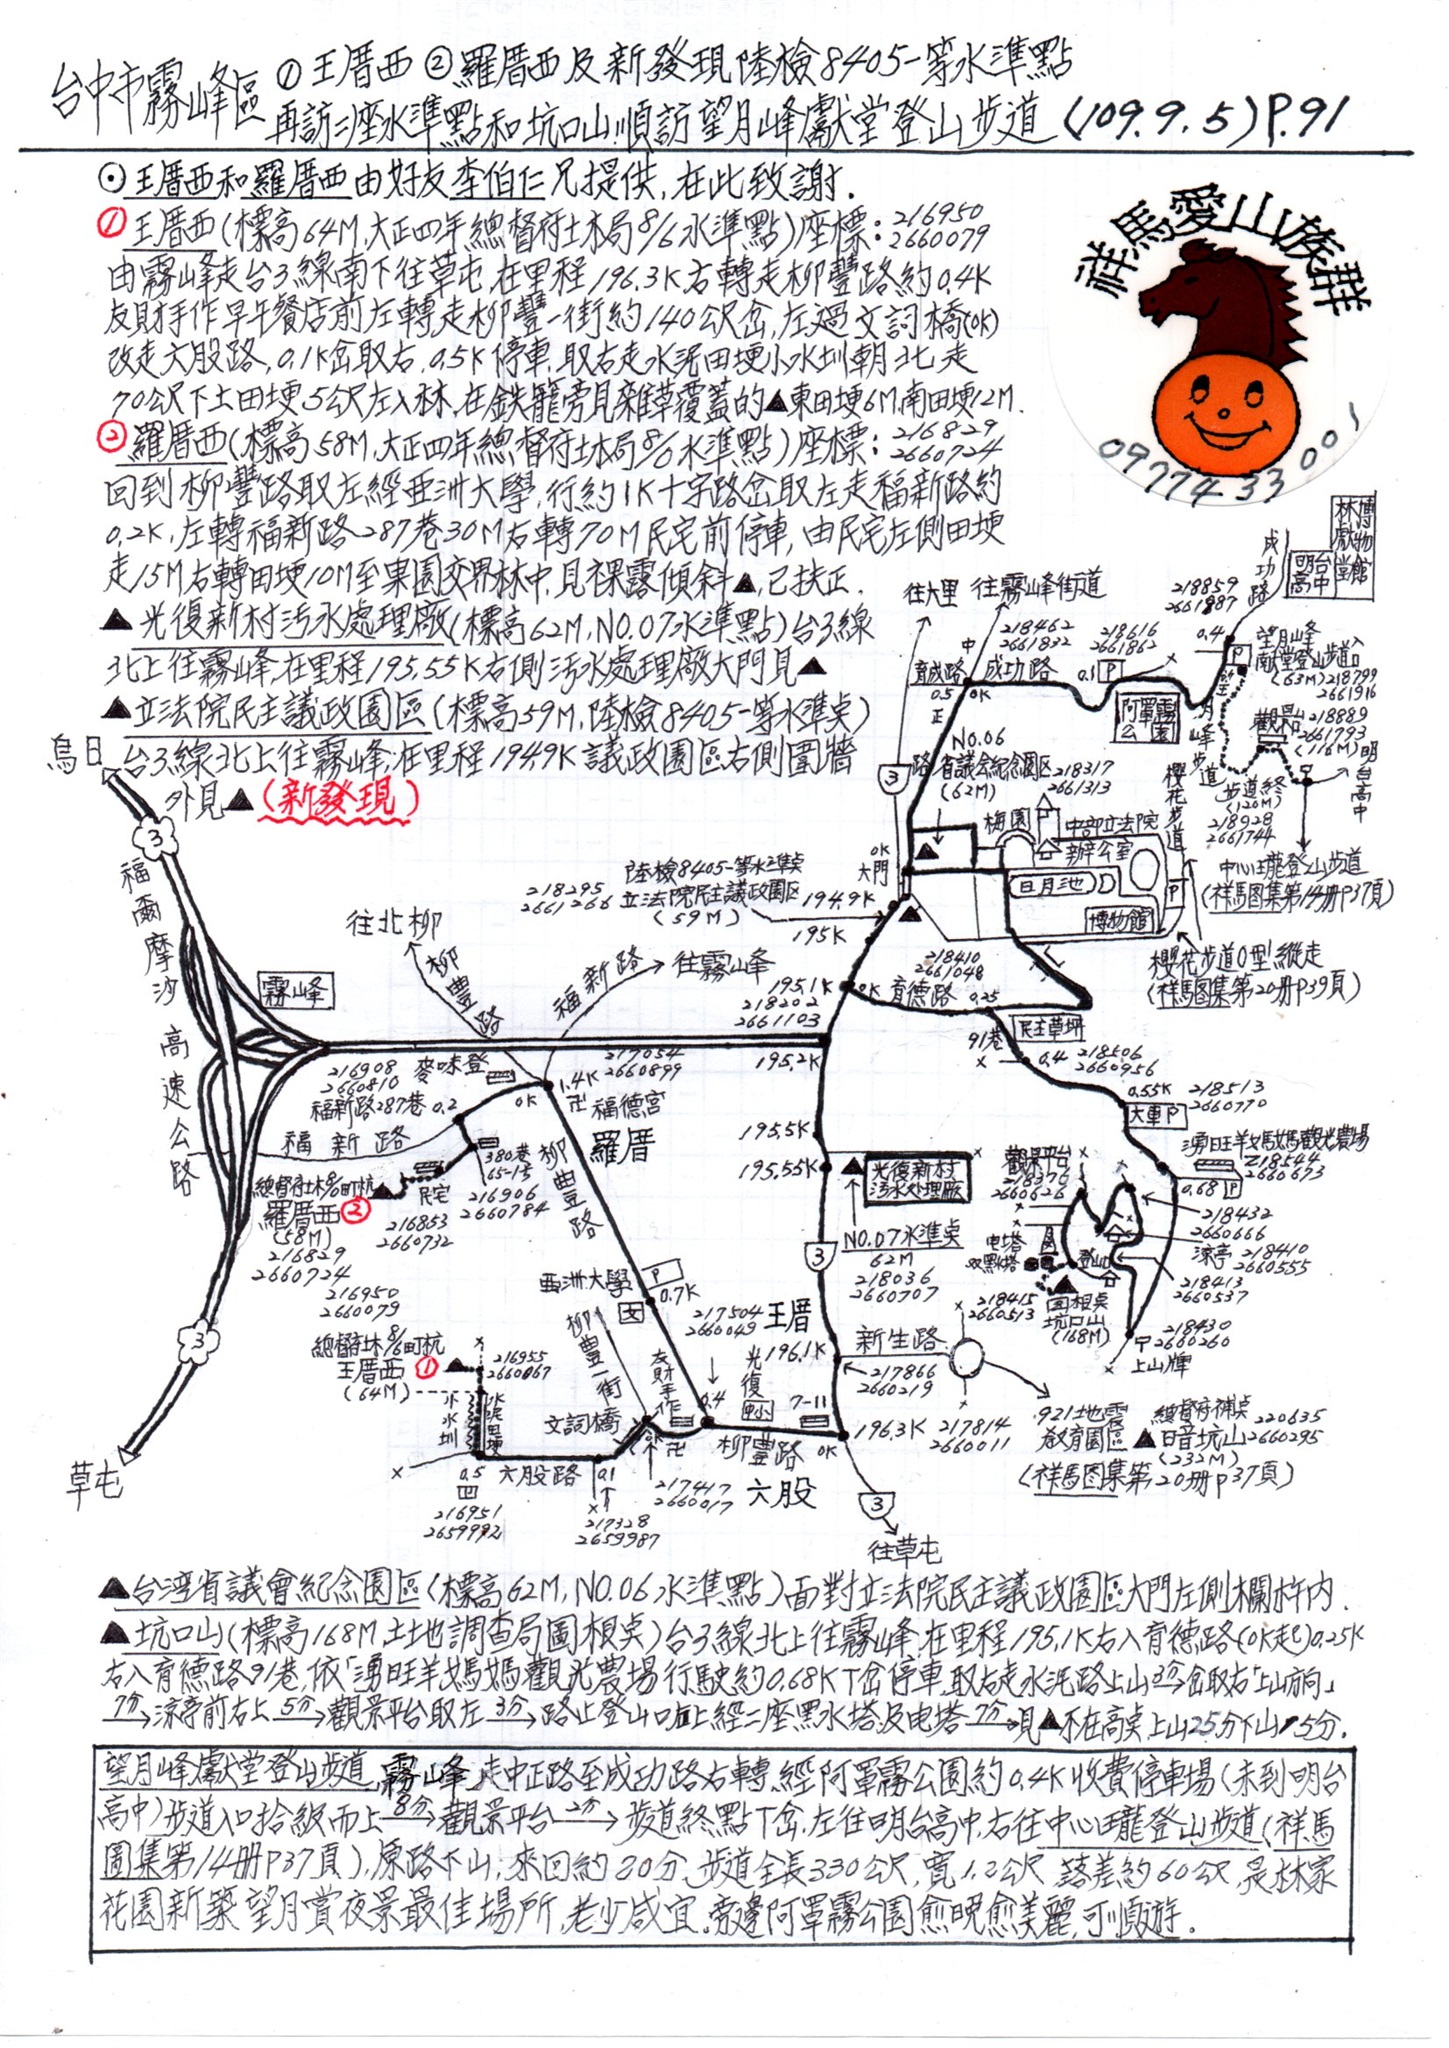 台中市霧峰區 ①王厝西②羅厝西及新發現陸檢8405一等水準點
再訪二座水準點和坑口山順訪望月峰獻堂登山步道(109.9.5)P.91
⊙王厝西和羅厝西由好友李伯仁兄提供,在此致謝.
①王厝西(標高64M,大正四年總督府土木局8/6水準點)座標:216950 2660079
由霧峰走台3線南下往草屯,在里程196.3K右轉走柳豐路約0.4K
友財手作早午餐店前左轉走柳豐一街約140公尺岔,左過文詞橋(0K)
改走六股路,0.1K岔取右,0.5K停車,取右走水泥田埂小水圳朝北走
70公尺下土田埂5公尺左入林,在鉄籠旁見雜草覆蓋的▲東田埂6M,南田埂12M.
②羅厝西(標高58M,大正四年總督府土木局8/6水準點)座標:216829 2660724
回到柳豐路取左經亞洲大學,行約1K十字路岔取左走福新路約
0.2K,左轉福新路287巷30M右轉70M民宅前停車,由民宅左側田埂
走15M右轉田埂10M至果園交界林中,見裸露傾斜▲,已扶正.
▲光復新村污水處理廠(標高62M,NO.07水準點)台3線
北上往霧峰,在里程195.55K右側污水處理廠大門見▲
▲立法院民主議政園區(標高59M,陸檢8405一等水準点)
台3線北上往霧峰,在里程194.9K議政園區右側圍牆
外見▲(新發現)
祥馬愛山族群
0977433001
林獻堂博物館
明台高中
成功路
往大里
往霧峰街道
218462
2661832
218616
2661862
218859
2661887
0.4
望月峰
獻堂登山步道入口
(63M)218799
2661916
育成路
成功路
0.1 P
0.5
0K
中
正
路
阿罩霧公園
望月峰步道
觀景台
218889
2661793
(116M)
明台高中
步道終
(120M)
218928
2661744
櫻花步道
中心瓏登山步道
(祥馬图集第14册P37頁)
NO.06
省議会紀念園区
(62M)
218317
2661313
梅園
中部立法院
辦公室
日月池
博物館
P
0K
大門
櫻花步道O型縱走
(祥馬图集第20册P39頁)
陸檢8405一等水準点
立法院民主議政園区
(59M)
218295
2661266
194.9K
195K
195.1K
218202
2661103
0K
育德路
218410
2661048
0.25
民主草坪
91巷
0.4
218506
2660956
0.55K
218513
2660770
大車P
湧旺羊媽媽觀光農場
218544
2660673
0.68 P
烏日
3
福爾摩沙高速公路
霧峰
往北柳
柳豐路
福新路
往霧峰
195.2K
216908
2660810
麥味登
福新路287巷
0.2
0K
1.4K
217054
2660899
卍福德宮
羅厝
福新路
380巷
65-1号
民宅
216906
2660784
216853
2660732
總督府土木8/6町杭
羅厝西②
(58M)
216829
2660724
195.5K
195.55K
光復新村
污水处理廠
NO.07水準点
62M
218036
2660707
觀景平台
218376
2660626
218432
2660666
涼亭 218410
2660555
218413
2660537
电塔
双黑水塔
登山口
218415
2660513
図根点
坑口山
(168M)
218430
2660260
上山牌
216950
2660079
總督府土木8/6町杭
王厝西①
(64M)
216955
2660067
小水圳
水泥田埂
亞洲大學
P
文
0.7K
217504
2660049
柳豐路
柳豐一街
友財手作
文詞橋
0K
卍
0.4
光復
中小
7-11
王厝
196.1K
新生路
217866
2660219
196.3K
217814
2660011
921地震
教育園區
總督府補点
▲日音坑山
(232M)
220635
2660295
(祥馬图集第20册P37頁)
草屯
0.5
216951
2659992
六股路
0.1
217328
2659987
217417
2660017
柳豐路
0K
六股
往草屯
▲台湾省議會紀念園區(標高62M,NO.06水準點)面對立法院民主議政園區大門左側欄杆内.
▲坑口山(標高168M,土地調查局圖根点)台3線北上往霧峰,在里程195.1K右入育德路(0K起)0.25K
右入育德路91巷,依「湧旺羊媽媽觀光農場行駛約0.68KT岔停車,取右走水泥路上山3分→岔取右「上山方向」
7分→涼亭前右上5分→觀景平台取左3分→路止登山口陡上經二座黑水塔及电塔7分→見▲不在高点上山25分下山15分.
望月峰獻堂登山步道,霧峰走中正路至成功路右轉,經阿罩霧公園約0.4K收費停車場(未到明台
高中)步道入口拾級而上8分→觀景平台2分→步道終點T岔,左往明台高中,右往中心瓏登山步道(祥馬
圖集第14册P37頁),原路下山,來回約20分,步道全長330公尺,寬1.2公尺,落差約60公尺,是林家
花園新築望月賞夜景最佳場所,老少咸宜.旁邊阿罩霧公園愈晚愈美麗,可順遊.